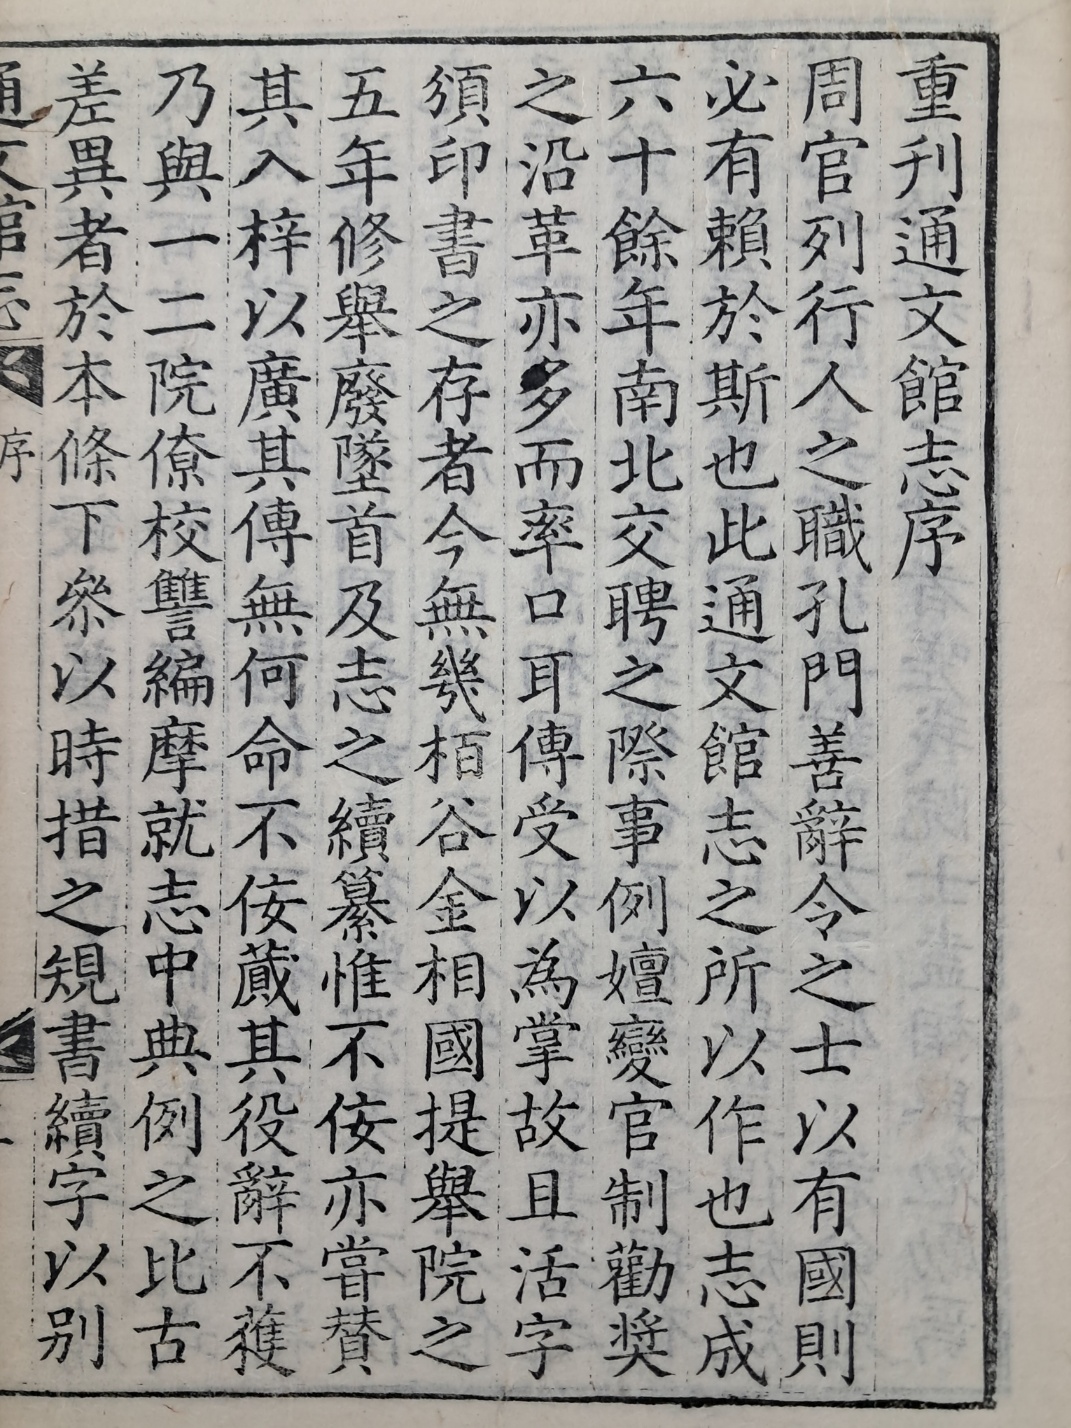 重刊通文館志序
周官列行人之職孔門善辭令之士以有國則
必有賴於斯也此通文館志之所以作也志成
六十餘年南北交聘之際事例嬗變官制勸奬
之沿革亦多而率口耳傳受以為掌故且活字
須印書之存者今無幾栢谷金相國提舉院之
五年修舉廢墜首及志之續纂惟不侫亦嘗贊
其入梓以廣其傳無何命不侫蕆其役辭不蒦
乃與一二院僚校讐編摩就志中典例之比古
差異者於本條下叅以時措之䂓書續字以别
通文館志
序